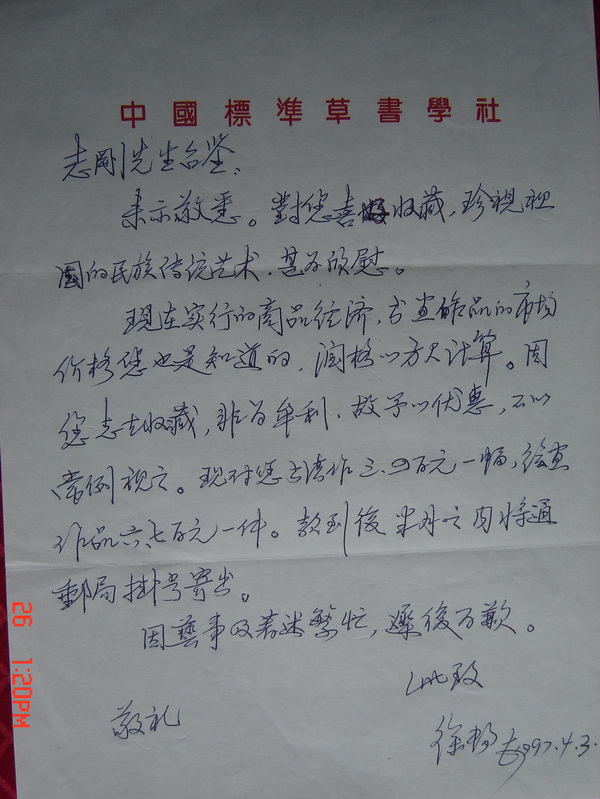 中國標準草書學社
志剛先生台鉴：
来示敬悉。對您喜收藏，珍視祖
國的民族传统艺术，甚为欣慰。
現在实行的商品经济，书画作品的市场
价格您也是知道的，润格以方尺计算。因
您志在收藏，非为牟利，故予以优惠，不以
常例视之。现对您书法作三、四百元一幅，绘画
作品六、七百元一件。款到後半月之内将通
郵局掛号寄出。
因藝事及著述繁忙，遲後为歉。
此致
敬礼
徐 1997.4.3.
26 1:20PM